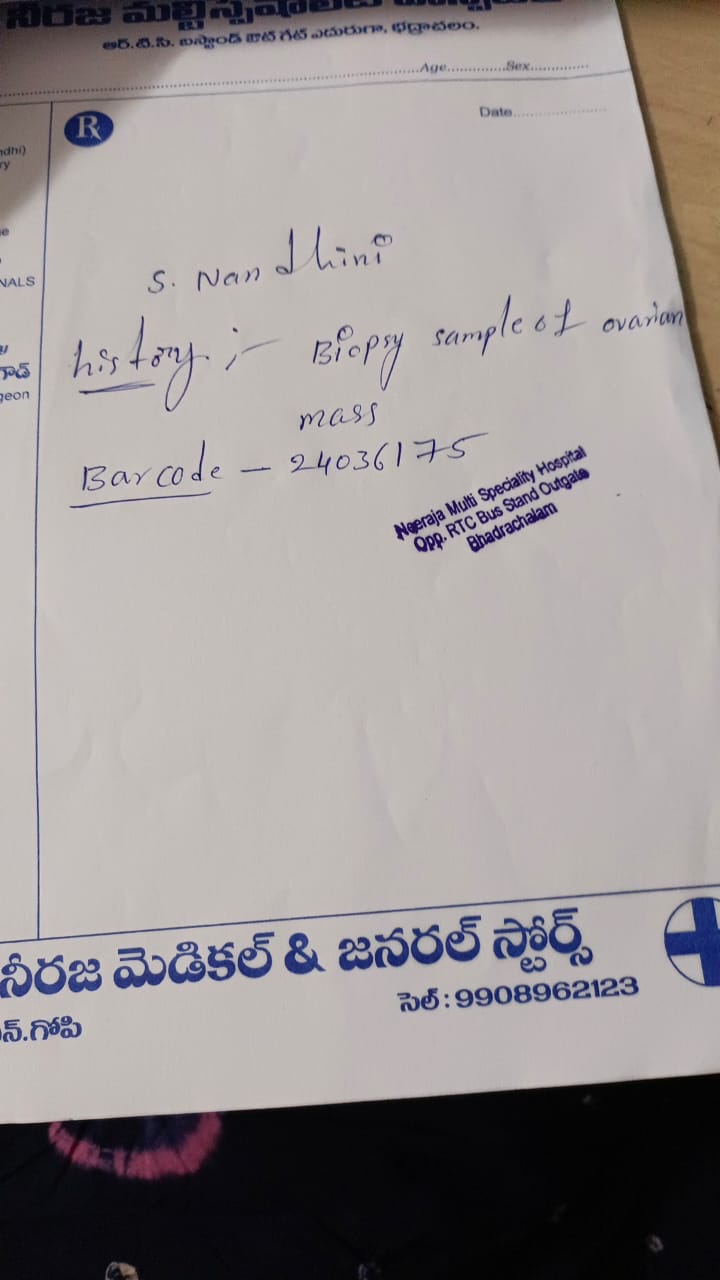 నీరజ మల్టీస్పెషాలిటీ
ఆర్.టి.సి. బస్టాండ్ ఔట్ గేట్ ఎదురుగా, భద్రాచలం.
Age.............Sex.............
Rx
Date........................
ndhi)
ry
e
NALS
గాడ్
geon
S. Nandhini
history :- Biopsy sample of ovarian
mass
Barcode - 24036175
Neeraja Multi Speciality Hospital
Opp. RTC Bus Stand Outgate
Bhadrachalam
నీరజ మెడికల్ & జనరల్ స్టోర్స్
సెల్ : 9908962123
న్.గోపి